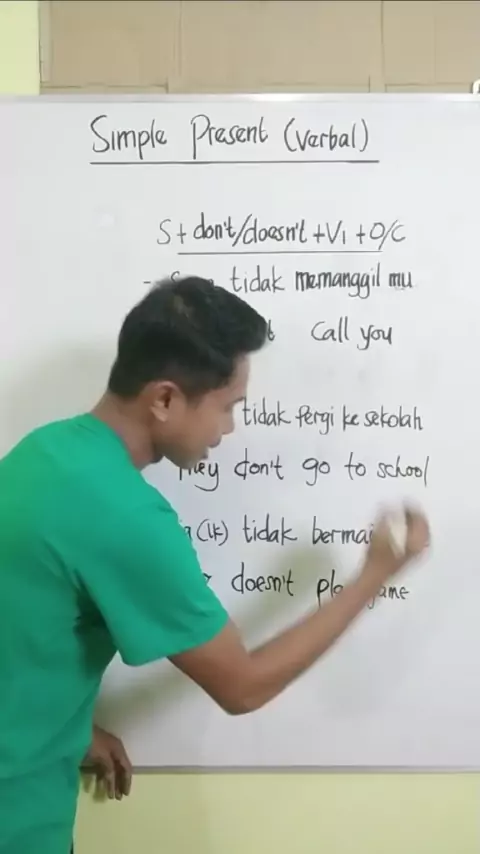 Simple Present (Verbal)
S + don't/doesn't + V1 + O/C
- tidak memanggil mu
call you
tidak Pergi ke sekolah
They don't go to school
(lk) tidak
doesn't